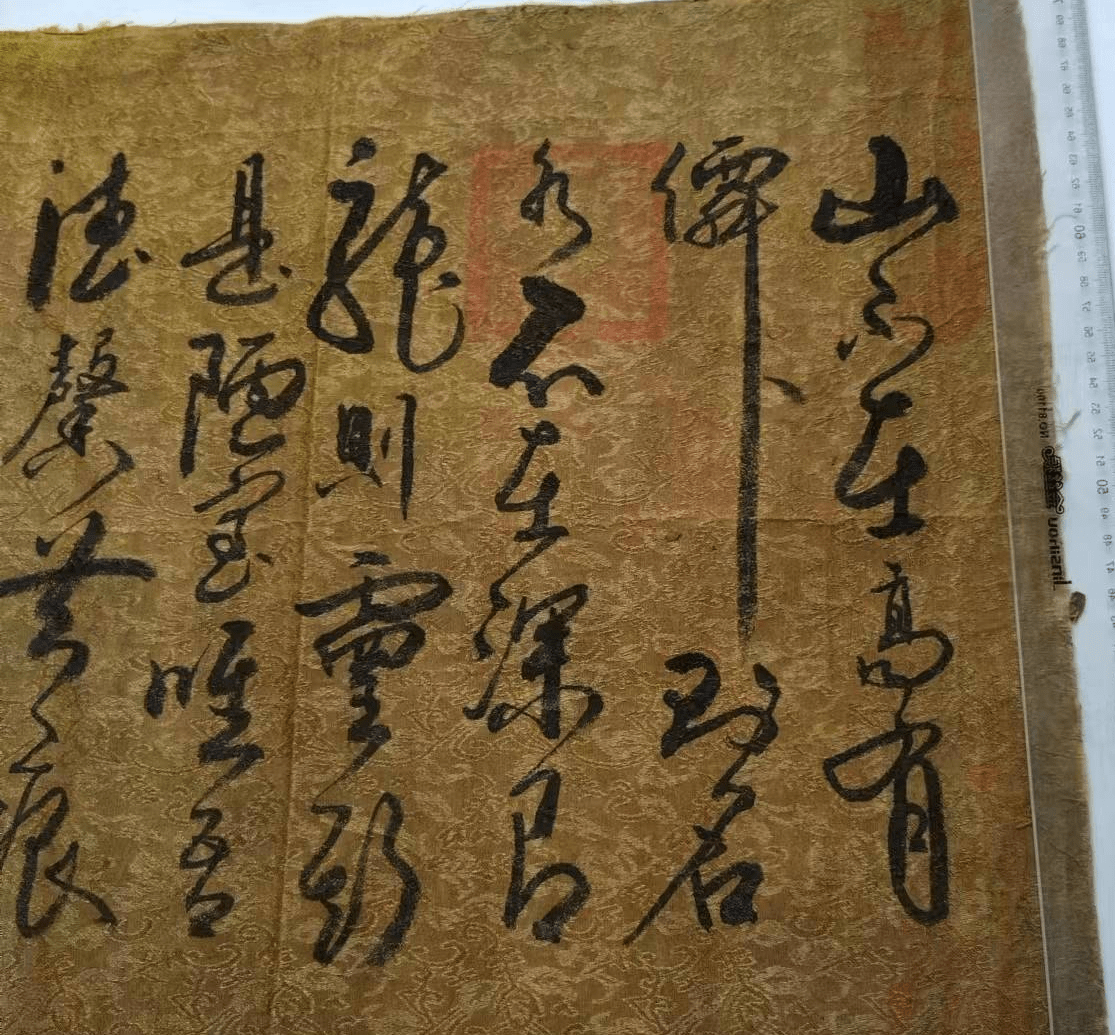 山不在高有
僊則名
水不在深有
龍則靈斯
是陋室唯吾
德馨苔痕